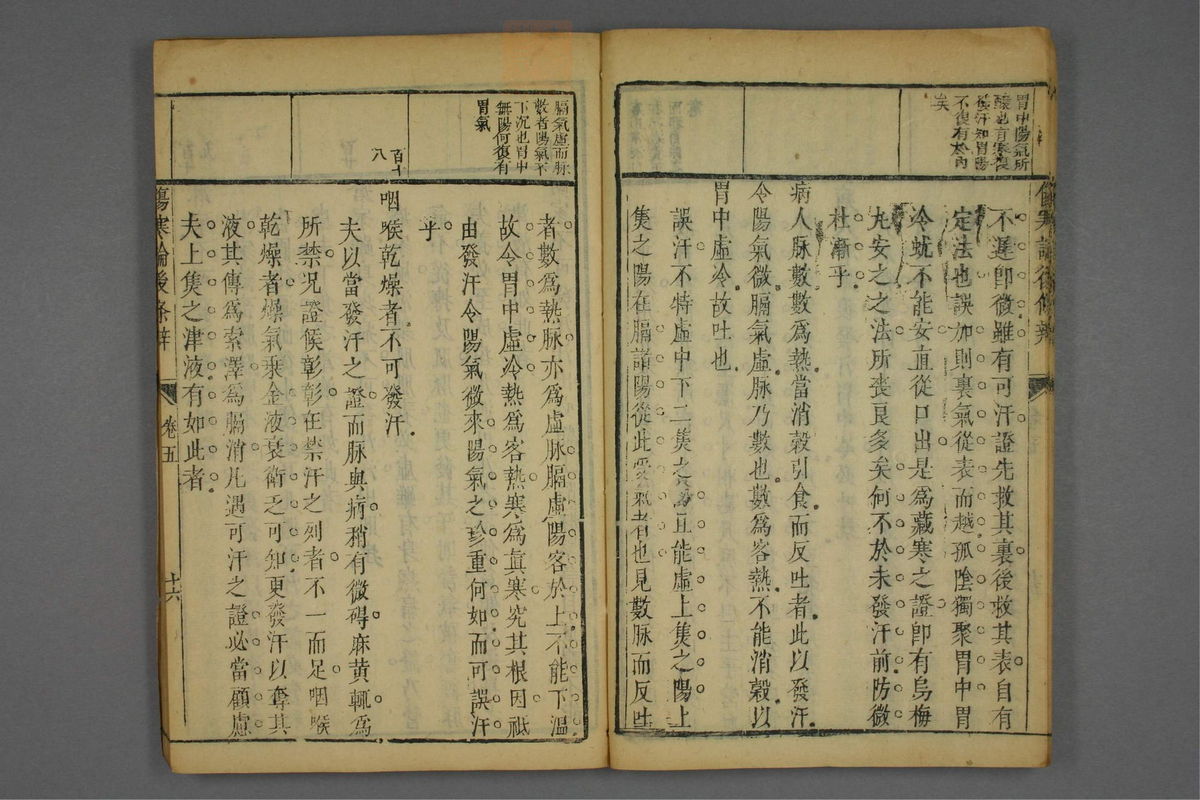 傷寒論後條辨
胃中陽氣所
釀也有寒復
發汗知胃陽
不復有於內
矣
不遲卽微雖有可汗證先救其裏後救其表自有
定法也誤加則裏氣從表而越孤陰獨聚胃中胃
冷蚘不能安直從口出是爲藏寒之證卽有烏梅
丸安之之法所喪良多矣何不於未發汗前防微
杜漸乎
病人脉數數爲熱當消穀引食而反吐者此以發汗
令陽氣微膈氣虛脉乃數也數爲客熱不能消穀以
胃中虛冷故吐也
誤汗不特虛中下二焦之陽且能虛上焦之陽上
焦之陽在膈諸陽從此受氣者也見數脉而反吐
膈氣虛而脉
數者陽氣不
下沉也胃中
無陽何復有
胃氣
百十
八
者數爲熱脉亦爲虛脉膈虛陽客於上不能下溫
故令胃中虛冷熱爲客熱寒爲眞寒究其根因祗
由發汗令陽氣微來陽氣之珍重何如而可誤汗
乎
咽喉乾燥者不可發汗
夫以當發汗之證而脉與病稍有微碍麻黄輒爲
所禁况證候彰彰在禁汗之列者不一而足咽喉
乾燥者燥氣乗金液衰衛乏可知更發汗以奪其
液其傳爲索澤爲膈消凡遇可汗之證必當顧慮
夫上焦之津液有如此者
傷寒論後條辨
卷五
十六